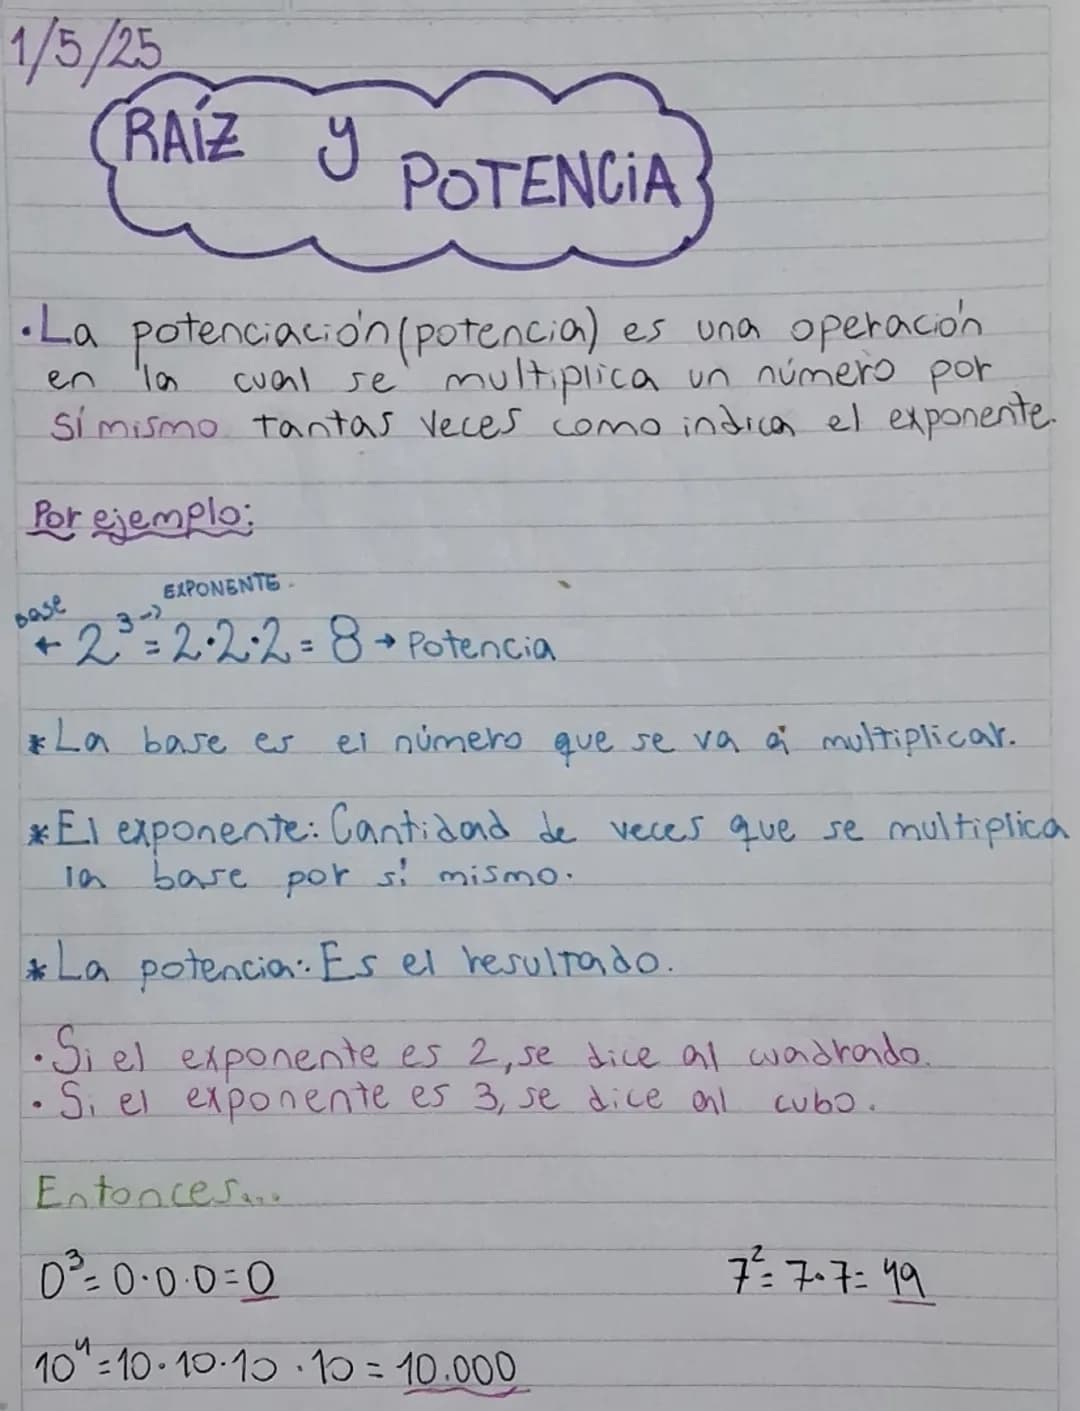 1/5/25
RAÍZ y
POTENCiA
·La potenciación (potencia) es una operación
en la cual se multiplica un número por
sí mismo tantas veces como indica el exponente.
Por ejemplo:
EXPONENTE.
base
← 2³ → = 2·2·2 = 8 → Potencia
*La base es el número que se va a multiplicar.
*El exponente: Cantidad de veces que se multiplica
la base por sí mismo.
*La potencia: Es el resultado.
·Si el exponente es 2, se dice al cuadrado.
·Si el exponente es 3, se dice al cubo.
Entonces...
0³ = 0·0·0 = 0 7² = 7·7 = 49
10⁴ = 10·10·10·10 = 10.000